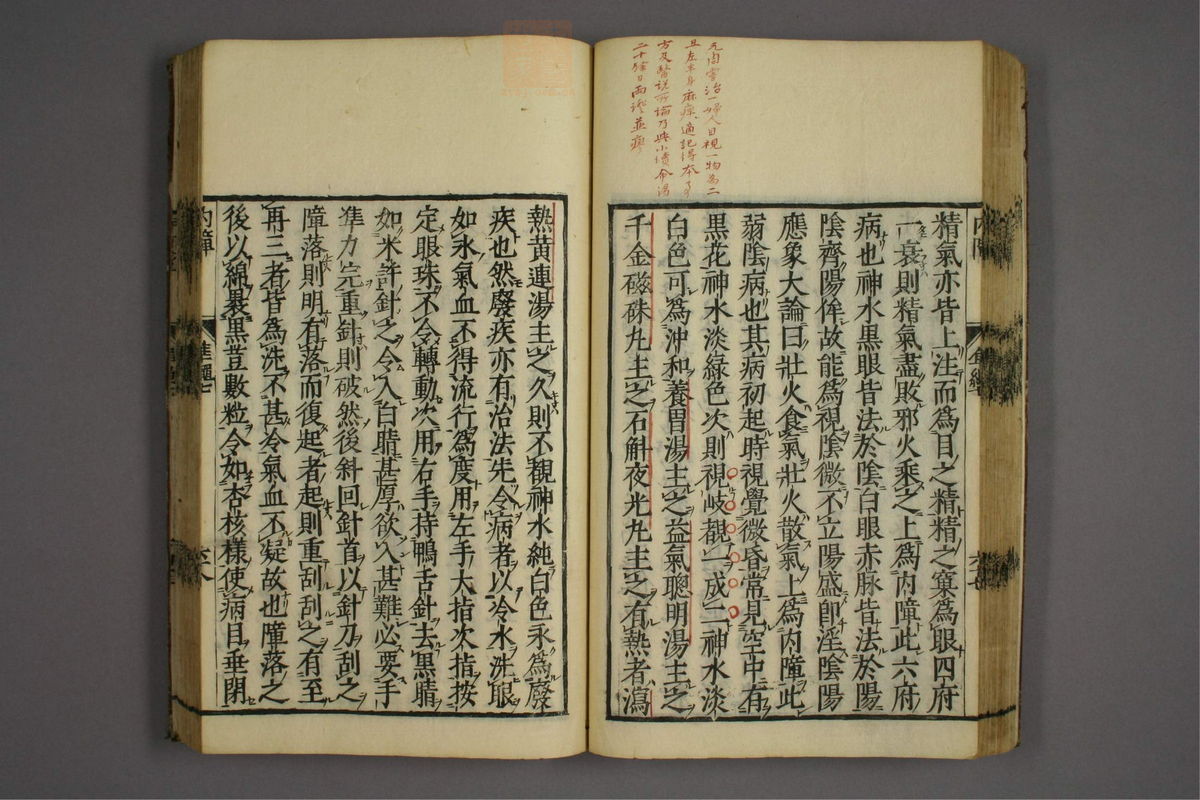 精氣亦皆上注而為目之精精之窠為眼四府
一衰則精氣盡敗邪火乘之上為内障此六府
病也神水黒眼皆法於陰白眼赤脉皆法於陽
陰齊陽侔故能為視陰微不立陽盛卽淫陰陽
應象大論曰壯火食氣壯火散氣上為内障此
弱陰病也其病初起時視覺微昏常見空中有
黒花神水淡緑色次則視岐覩一成二神水淡
白色可為沖和養胃湯主之益氣聰明湯主之
千金磁硃丸主之石斛夜光丸主之有熱者瀉
熱黄連湯主之久則不覩神水純白色永為廢
疾也然廢疾亦有治法先令病者以冷水洗眼
如氷氣血不得流行為度用左手大指次指按
定眼珠不令轉動次用右手持鴨舌針去黒睛
如米許針之令入白睛甚厚欲入甚難必要手
準力完重針則破然後斜回針首以針刀刮之
障落則明有落而復起者起則重刮刮之有至
再三者皆為洗不甚冷氣血不凝故也障落之
後以綿裹黒荳數粒令如杏核樣使病目垂閉
内障
六七
内障
六八
治一婦人目視一物為二
且左半身麻痺適記得本
方及醫説所論乃與
二十餘日兩證並